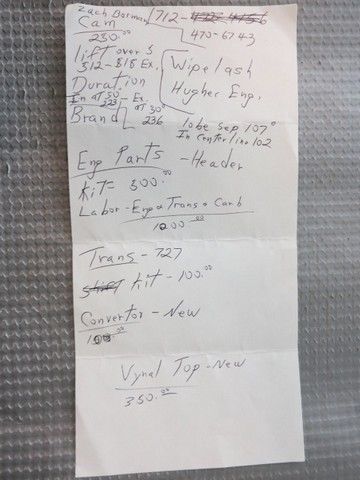 Zach Borman 712-
Cam 470-6743
230.00
lift over 5
512-518 Ex. Wipelash
Duration Hugher Eng.
In at 50 - Ex. at 50
223 236
Brand
lobe Sep 107°
In Centerline 102
Eng Parts - Header
kit= 300.00
Labor - Eng & Trans & Carb
1000.00
Trans - 727
kit - 100.00
Convertor - New
100.00
Vynal Top - New
350.00